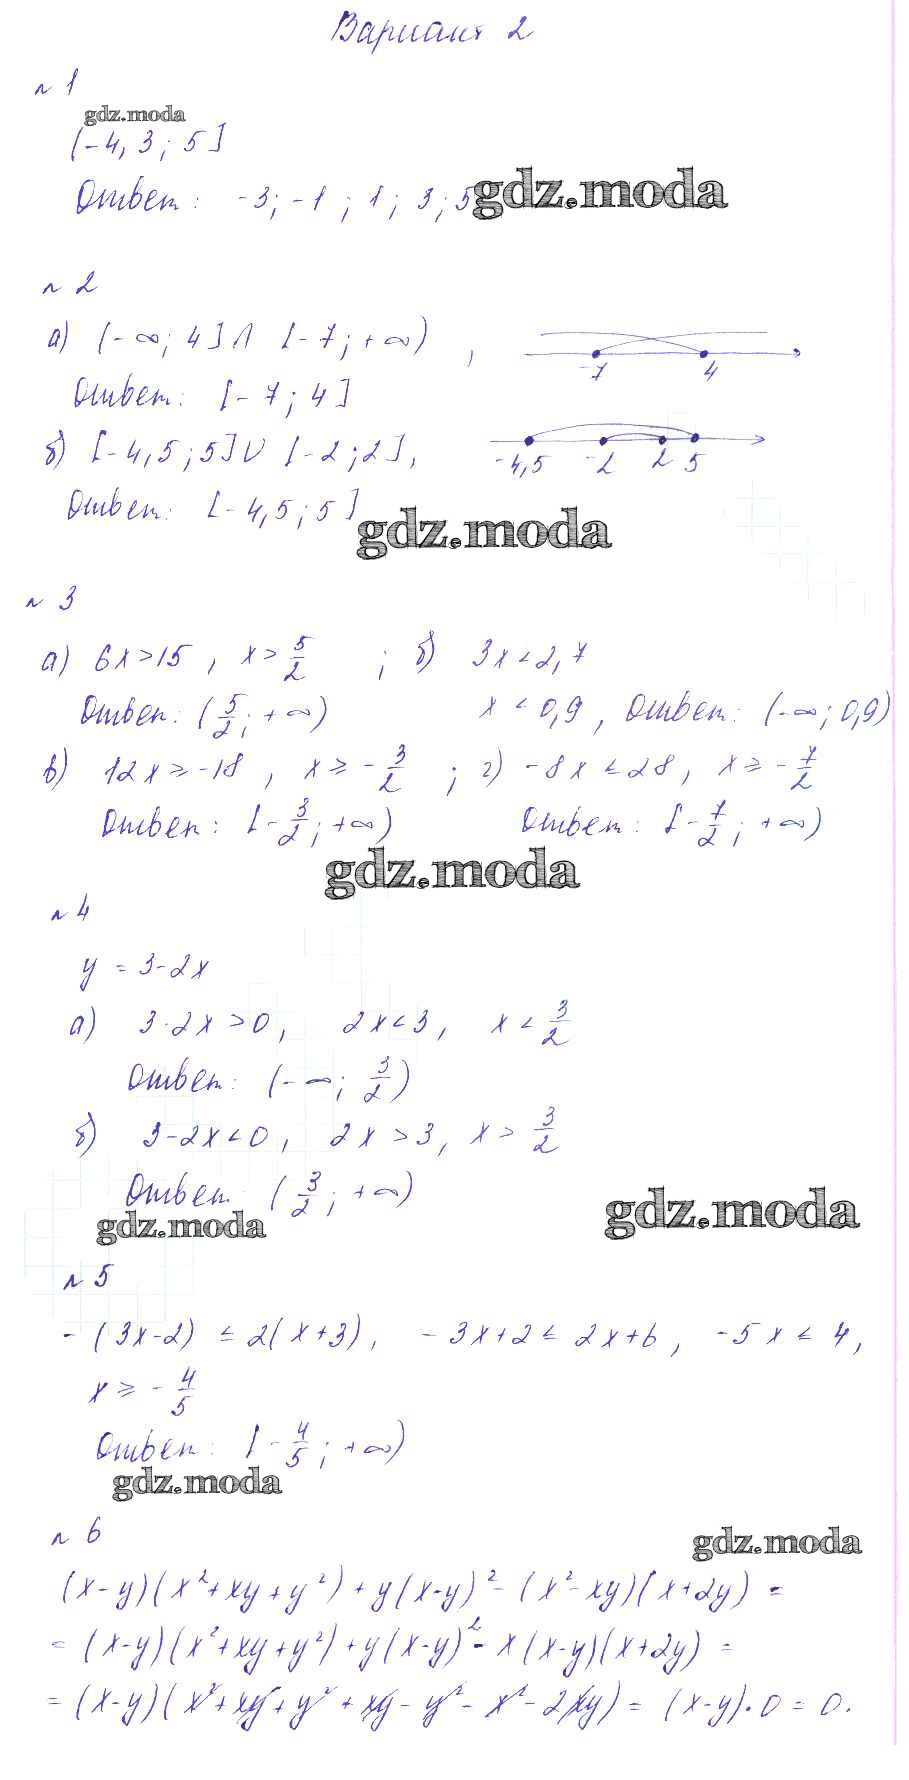 Вариант 2
№ 1
gdz.moda
(-4,3; 5]
Ответ: -3; -1; 1; 3; 5
gdz.moda
№ 2
а) (-∞; 4] ∩ [-7; +∞),
-7 4
Ответ: [-7; 4]
б) [-4,5; 5] ∪ [-2; 2],
-4,5 -2 2 5
Ответ: [-4,5; 5]
gdz.moda
№ 3
а) 6x > 15, x > 5/2; б) 3x < 2,7
Ответ: (5/2; +∞) x < 0,9, Ответ: (-∞; 0,9)
в) 12x ≥ -18, x ≥ -3/2; г) -8x ≤ 28, x ≥ -7/2
Ответ: [-3/2; +∞) Ответ: [-7/2; +∞)
gdz.moda
№ 4
y = 3-2x
а) 3-2x > 0, 2x < 3, x < 3/2
Ответ: (-∞; 3/2)
б) 3-2x < 0, 2x > 3, x > 3/2
Ответ: (3/2; +∞)
gdz.moda gdz.moda
№ 5
-(3x-2) ≤ 2(x+3), -3x+2 ≤ 2x+6, -5x ≤ 4,
x ≥ -4/5
Ответ: [-4/5; +∞)
gdz.moda
№ 6
gdz.moda
(x-y)(x²+xy+y²)+y(x-y)²-(x²-xy)(x+2y) =
= (x-y)(x²+xy+y²)+y(x-y)²-x(x-y)(x+2y) =
= (x-y)(x²+xy+y²+xy-y²-x²-2xy) = (x-y)·0 = 0.